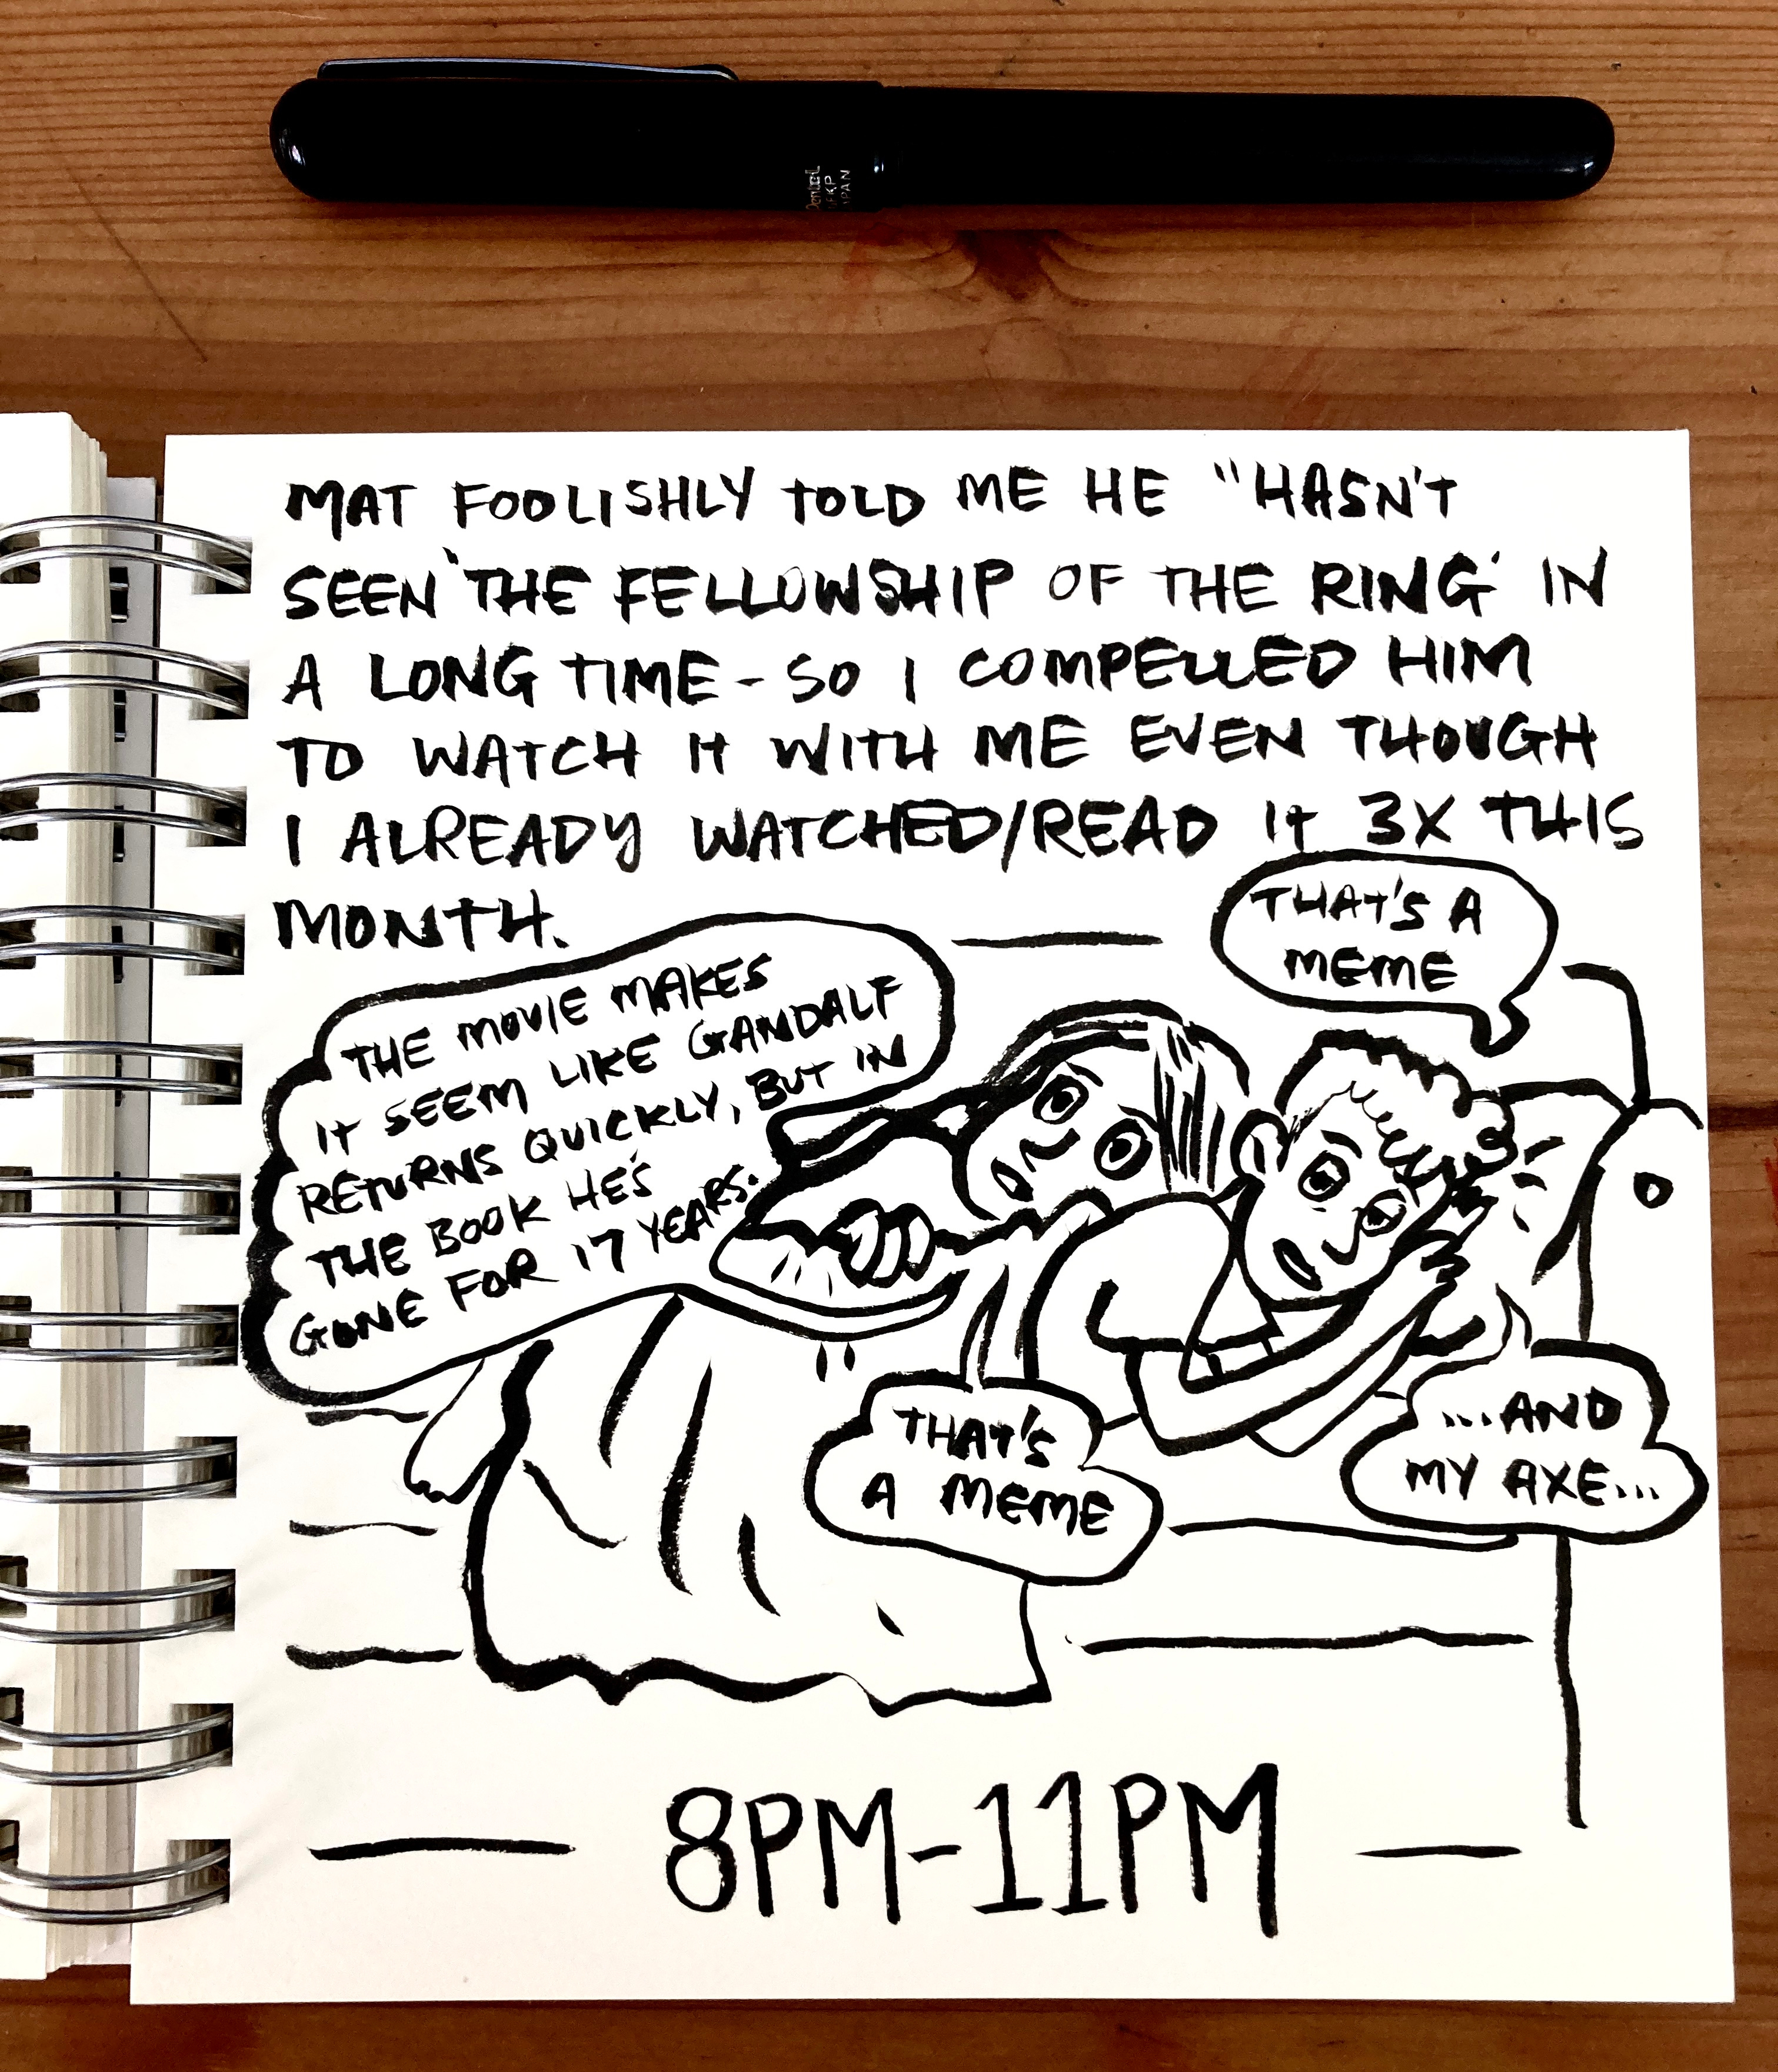 Pentel
GFKP
JAPAN
MAT FOOLISHLY TOLD ME HE "HASN'T
SEEN 'THE FELLOWSHIP OF THE RING' IN
A LONG TIME - SO I COMPELLED HIM
TO WATCH IT WITH ME EVEN THOUGH
I ALREADY WATCHED/READ IT 3X THIS
MONTH.
THE MOVIE MAKES
IT SEEM LIKE GANDALF
RETURNS QUICKLY, BUT IN
THE BOOK HE'S
GONE FOR 17 YEARS.
THAT'S A
MEME
THAT'S
A MEME
...AND
MY AXE...
8PM-11PM